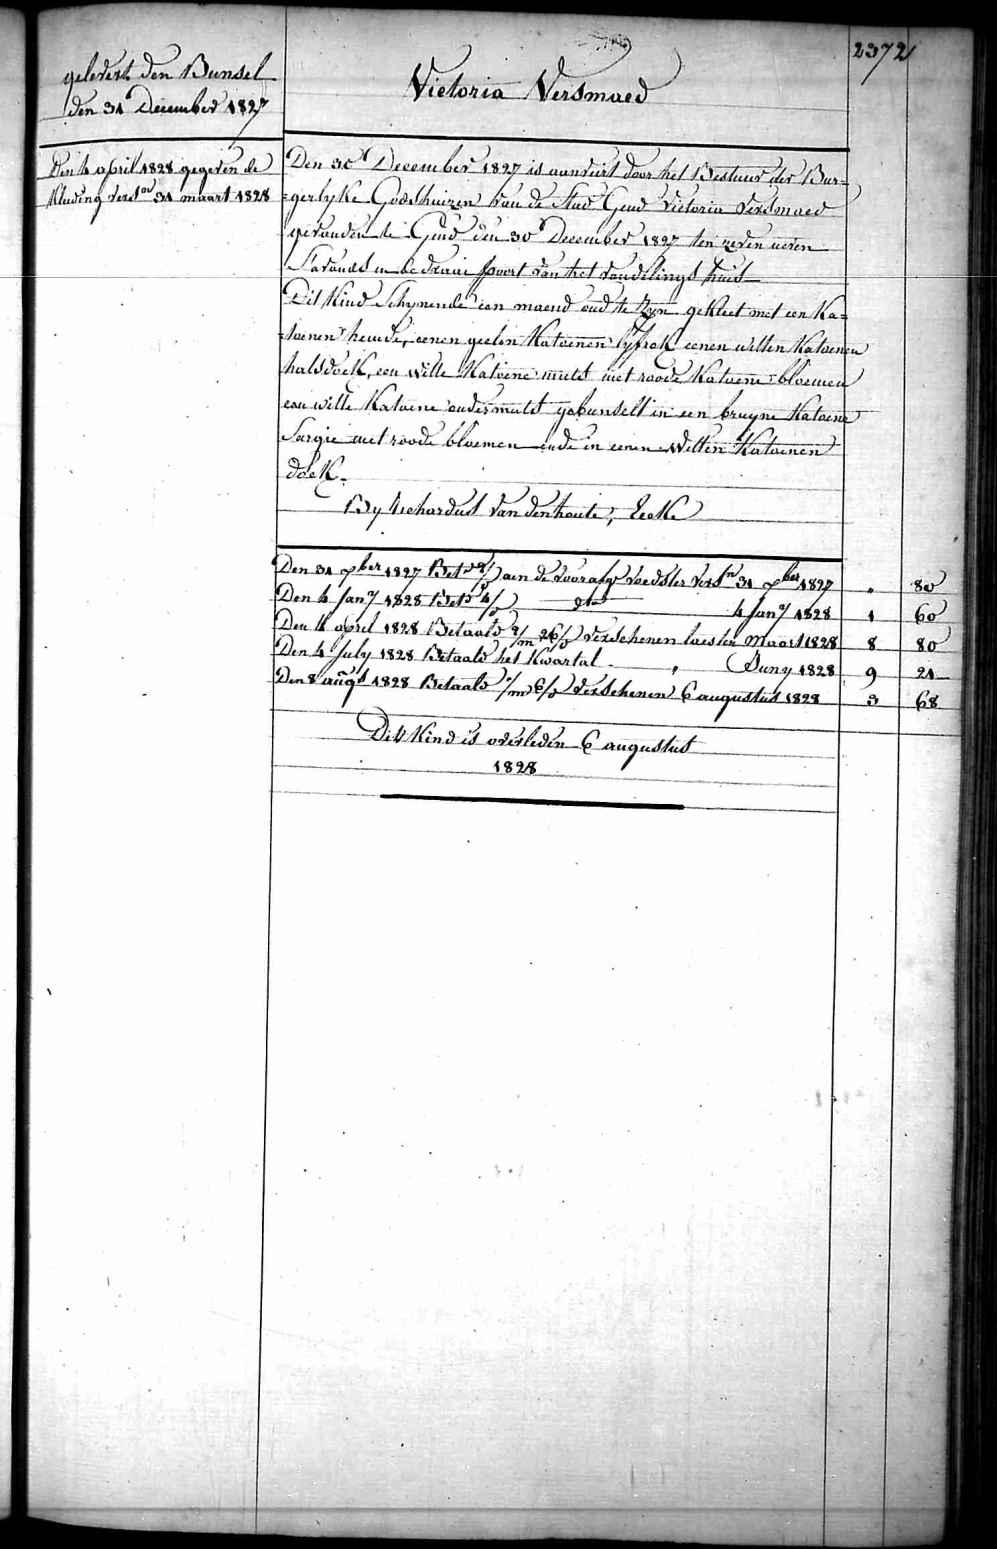 2372
gelevert den Bunsel
den 31 December 1827
Victoria Versmaed
Den 4 april 1828 gegeven de
Kleeding versen 31 maart 1828
Den 30t December 1827 is aenveird door het Bestuur der Bur=
=gerlyke Godshuizen van de Stad Gend Victoria Versmaed
gevonden te Gend den 30 December 1827 ten zeven ueren
S'avonds in de draai poort van het vondelings huis
Dit Kind Schynende een maend oud te Zyn gekleet met een Ka=
=toenen hemde, eenen geelen Katoenen lyfrok eenen witten Katoenen
halsdoek, een witte Katoene muts met roode Katoene bloemen
een witte Katoene ondermuts gebunselt in een bruyne Katoene
Sargie met roode bloemen ende in eenen Witten Katoenen
doek.
By Richardus Vandenhoute, Eecke
Den 31 Xber 1827 Bet aen de voorafge voedster versn 31 Xber 1827 " 80
Den 4 Jany 1828 Bet do 4 Jany 1828 1 60
Den 4 april 1828 Betaald 2/m 26/d verschenen laesten maart 1828 8 80
Den 4 July 1828 Betaald het Kwartal " Juny 1828 9 21
Den 8 augt 1828 Betaald 1/m 6/d verschenen 6 augustus 1828 3 68
Dit Kind is overleden 6 augustus
1828